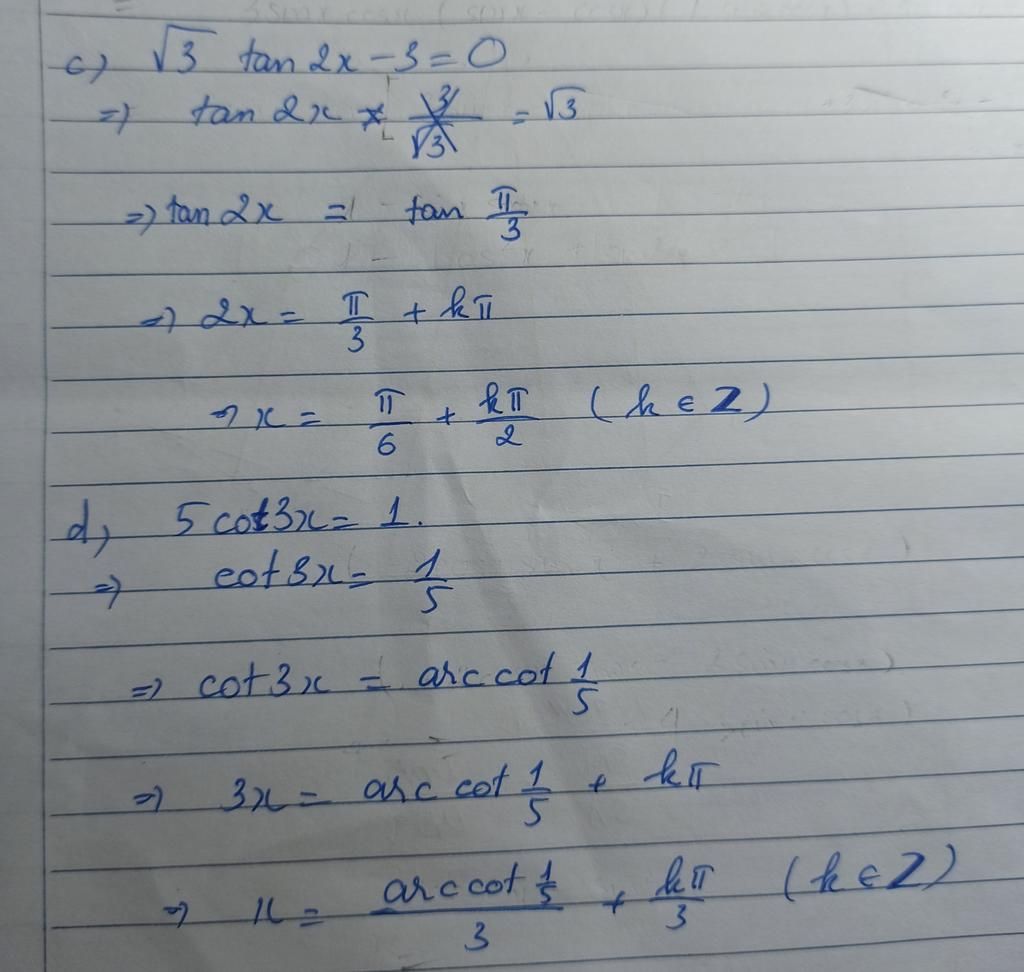 c) √3 tan 2x - 3 = 0
=> tan 2x = 3/√3 = √3
=> tan 2x = tan π/3
=> 2x = π/3 + kπ
=> x = π/6 + kπ/2 (k ∈ Z)
d, 5 cot3x = 1.
=> cot 3x = 1/5
=> cot 3x = arc cot 1/5
=> 3x = arc cot 1/5 + kπ
=> x = arc cot 1/5 / 3 + kπ/3 (k ∈ Z)